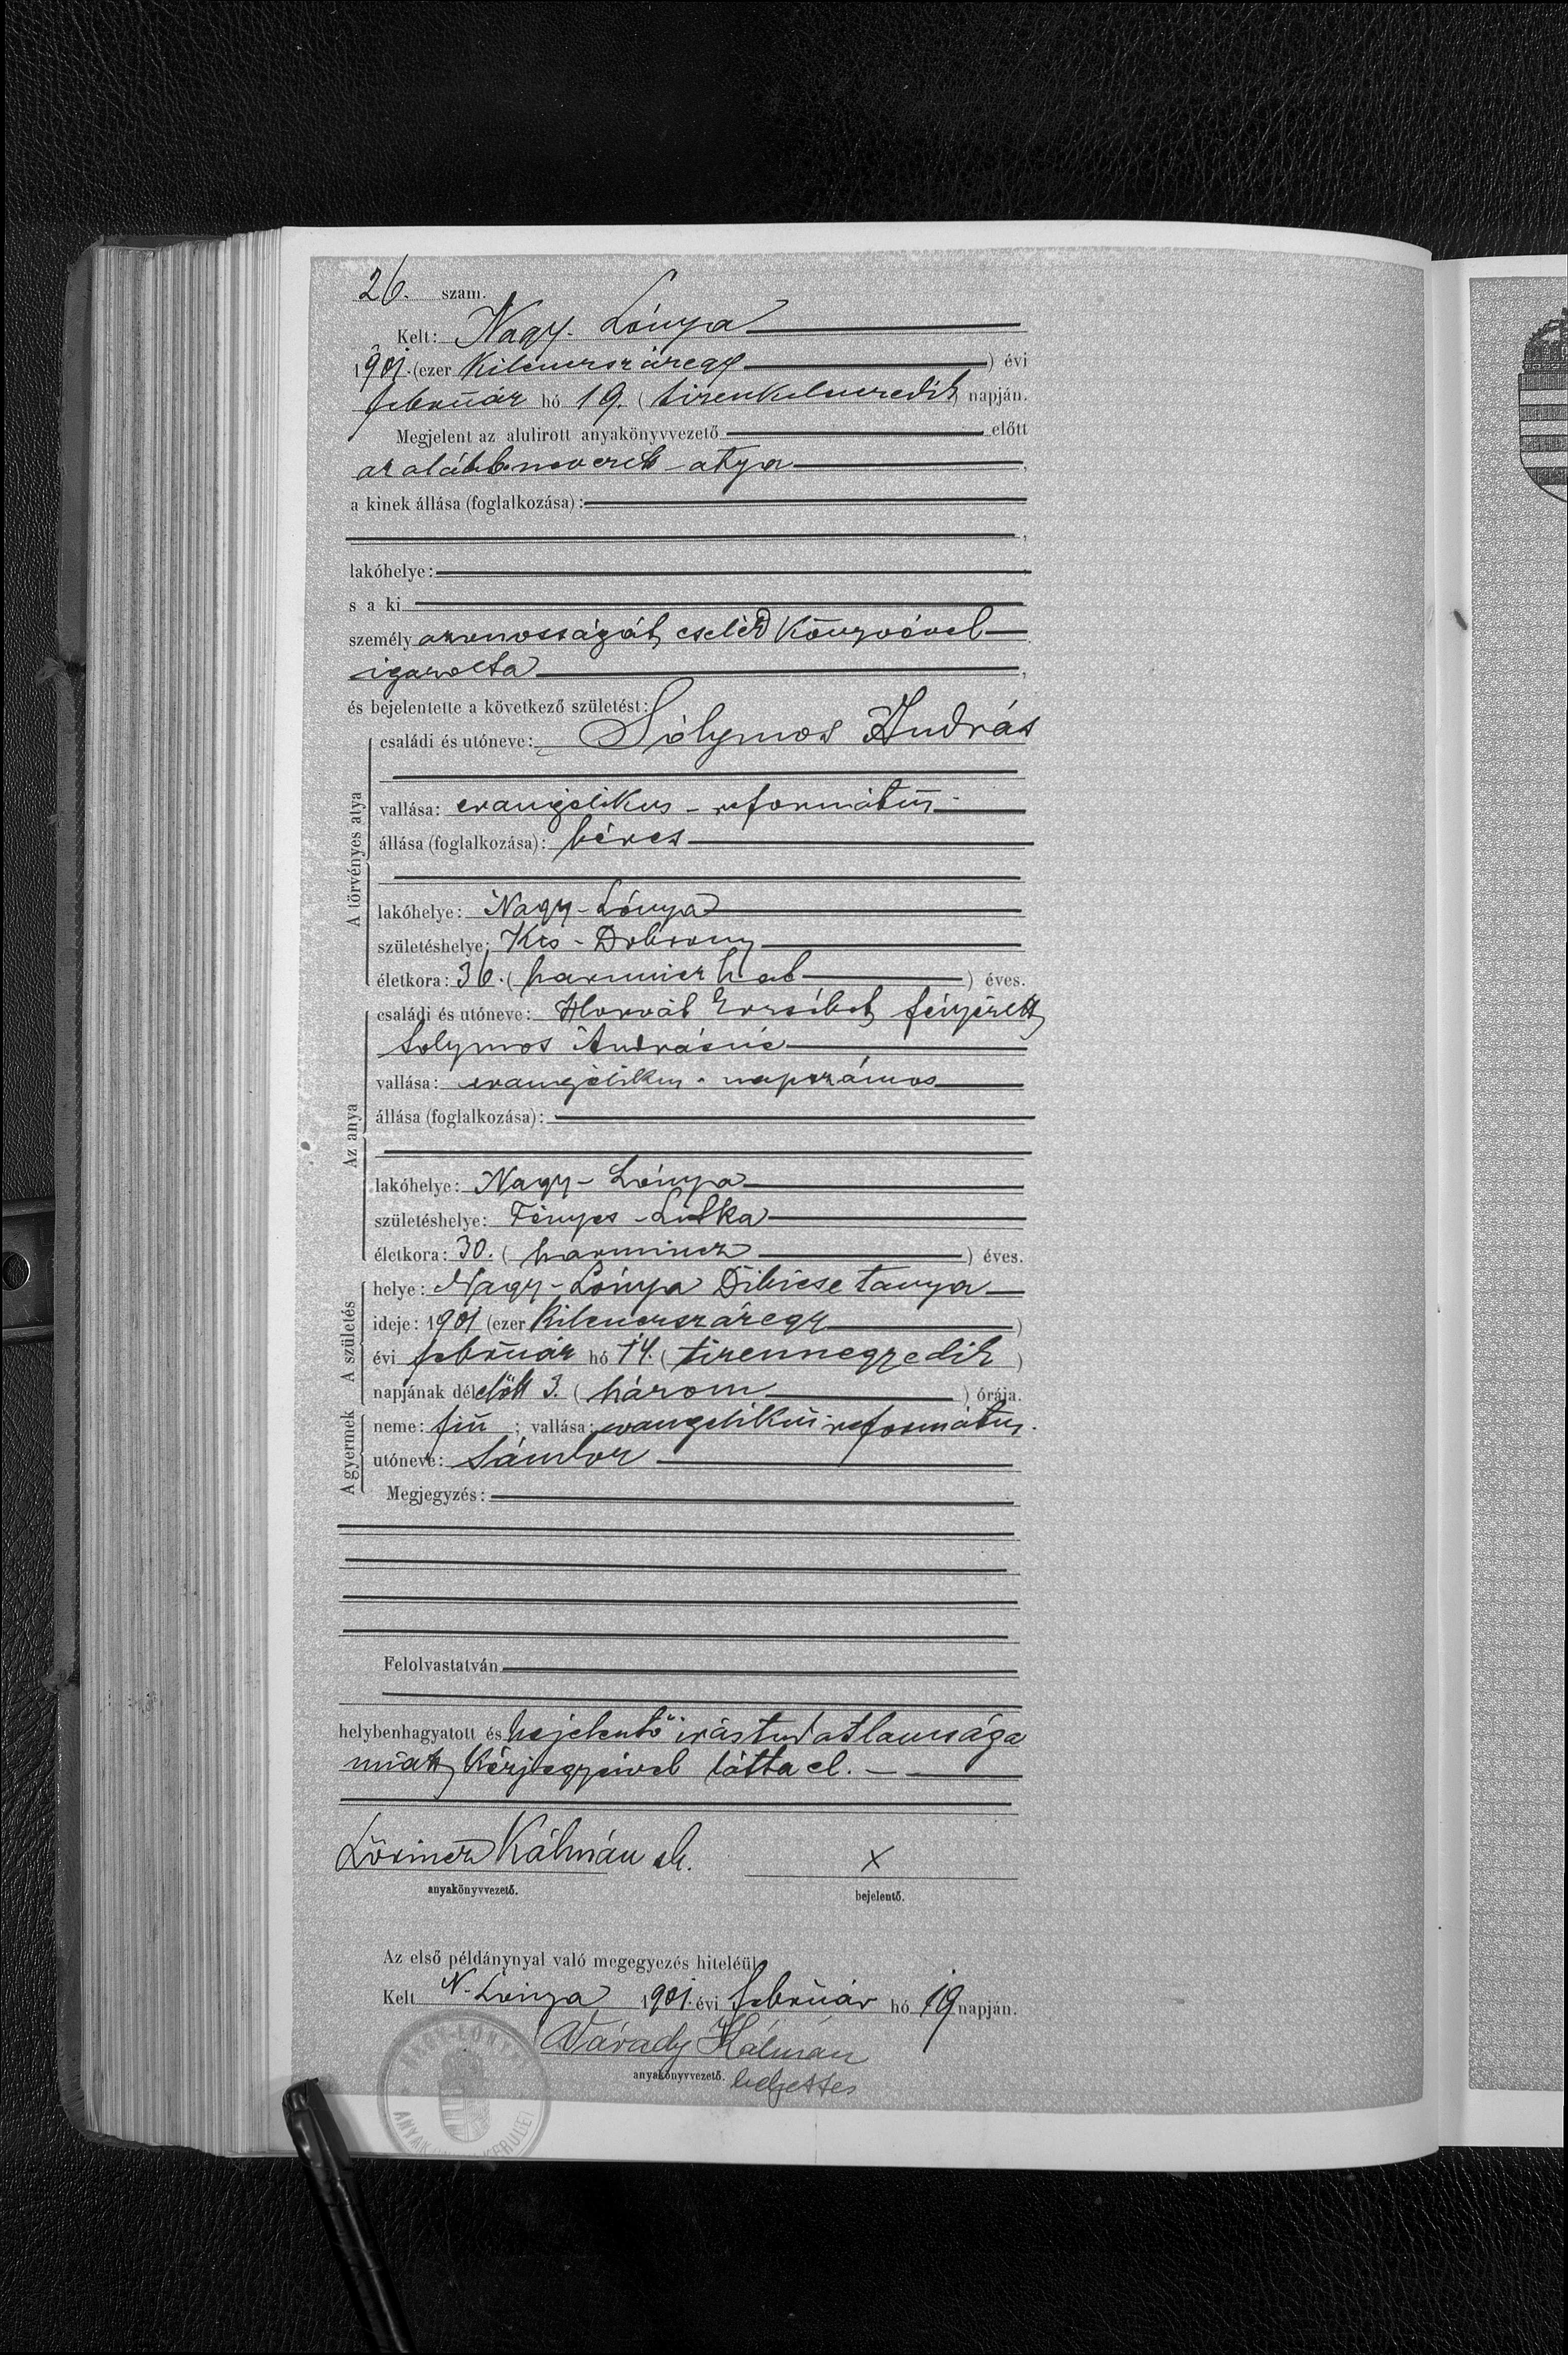 26. szam.
Kelt: Nagy-Lónya
1901. (ezer kilenczszázegy) évi
február hó 19. (tizenkilenczedik) napján.
Megjelent az alulirott anyakönyvvezető előtt
az alább nevezett atya,
a kinek állása (foglalkozása):
lakóhelye:
s a ki
személy azonosságát cseléd könyvével
igazolta,
és bejelentette a következő születést:
A törvényes atya
családi és utóneve: Sólymos András
vallása: evangelikus-református
állása (foglalkozása): béres
lakóhelye: Nagy-Lónya
születéshelye: Kis-Dobrony
életkora: 36. (harminczhat) éves.
Az anya
családi és utóneve: Horvát Erzsébet férjezett
Solymos Andrásné
vallása: evangélikus-napszámos
állása (foglalkozása):
lakóhelye: Nagy-Lónya
születéshelye: Fényes-Litka
életkora: 30. (harmincz) éves.
A születés
helye: Nagy-Lónya tanya
ideje: 1901 (ezer kilenczszázegy)
évi február hó 14. (tizennegyedik)
napjának délelőtt 3. (három) órája.
A gyermek
neme: fiú; vallása: evangelikus református.
utóneve: Sándor
Megjegyzés:
Felolvastatván
helybenhagyatott és bejelentő irástudatlansága
miatt kézjegyével látta el.
Lőrincz Kálmán sk. x
anyakönyvvezető. bejelentő.
Az első példánynyal való megegyezés hiteléül
Kelt N-Lónya 1901. évi február hó 19 napján.
Várady Kálmán
anyakönyvvezető. helyettes
NAGY-LÓNYA